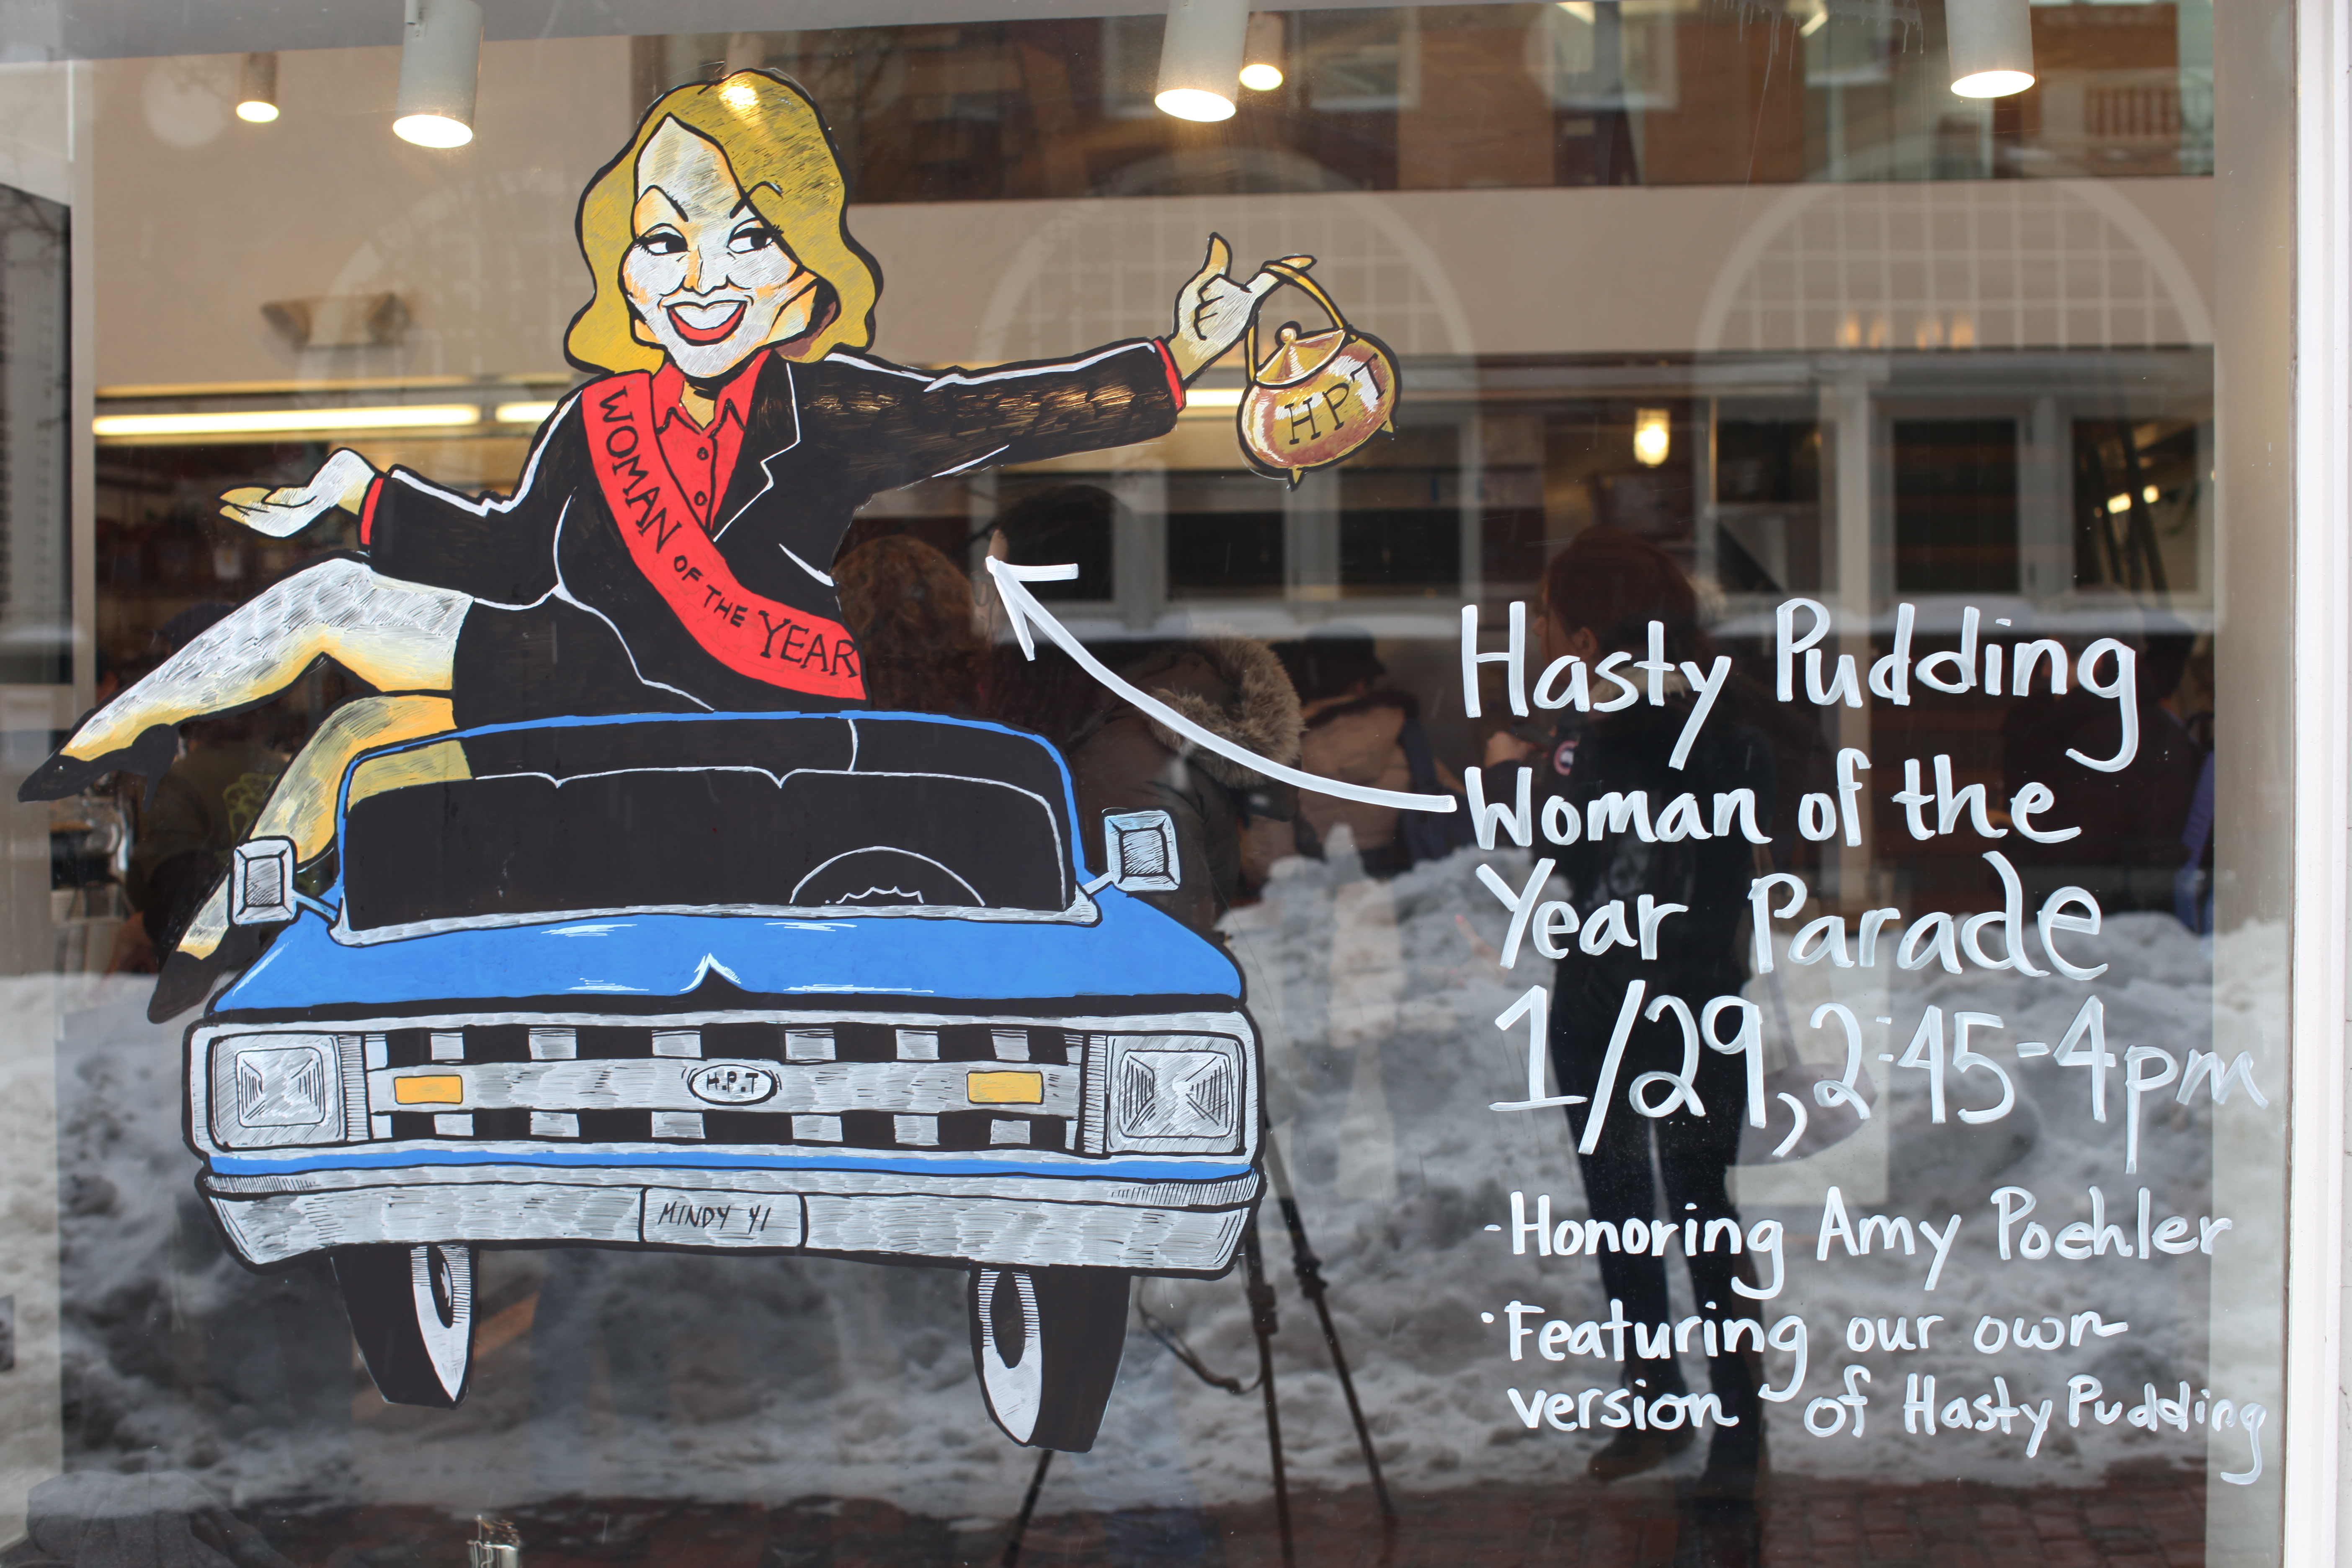 WOMAN OF THE YEAR
HPT
Hasty Pudding
Woman of the
Year Parade
1/29, 2:45-4pm
-Honoring Amy Poehler
·Featuring our own
version of Hasty Pudding
H.P.T
MINDY YI